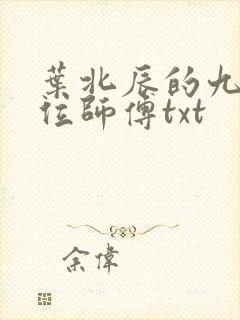 葉北辰的九
位師傅txt
余偉